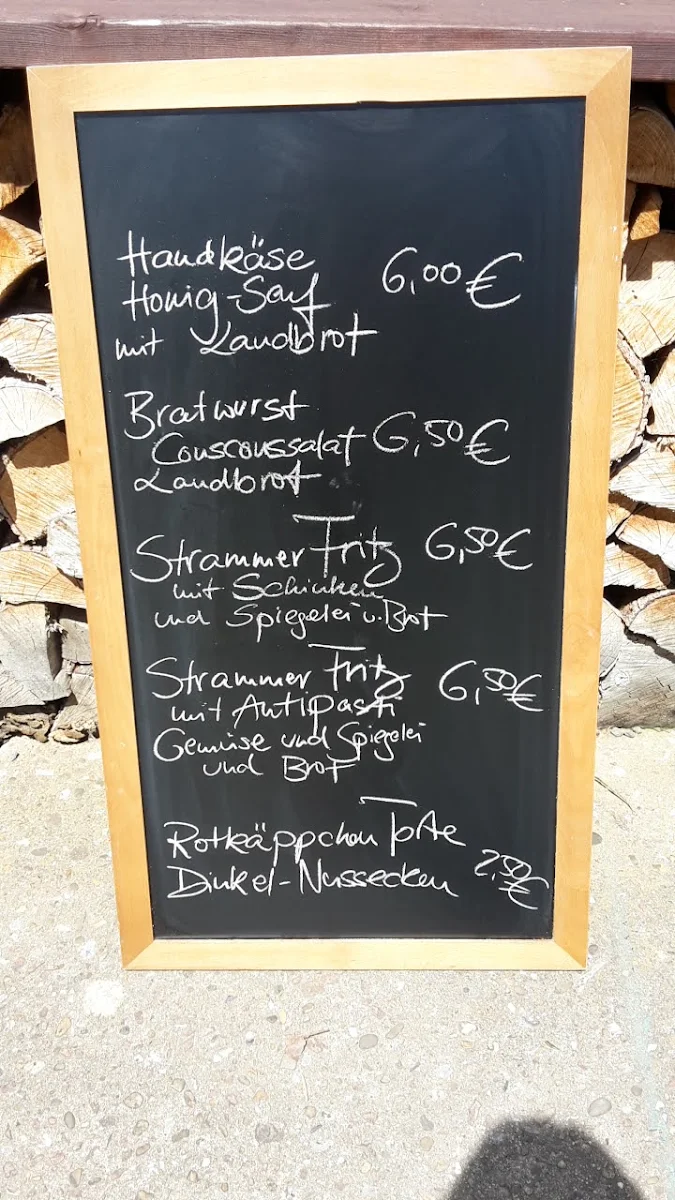 Handkäse
Honig-Senf 6,00 €
mit Landbrot
Bratwurst
Couscoussalat 6,50 €
Landbrot
Strammer Fritz 6,50 €
mit Schinken
und Spiegelei u. Brot
Strammer Fritz 6,50 €
mit Antipasti
Gemüse und Spiegelei
und Brot
Rotkäppchen Torte
Dinkel-Nussecken 2,50 €